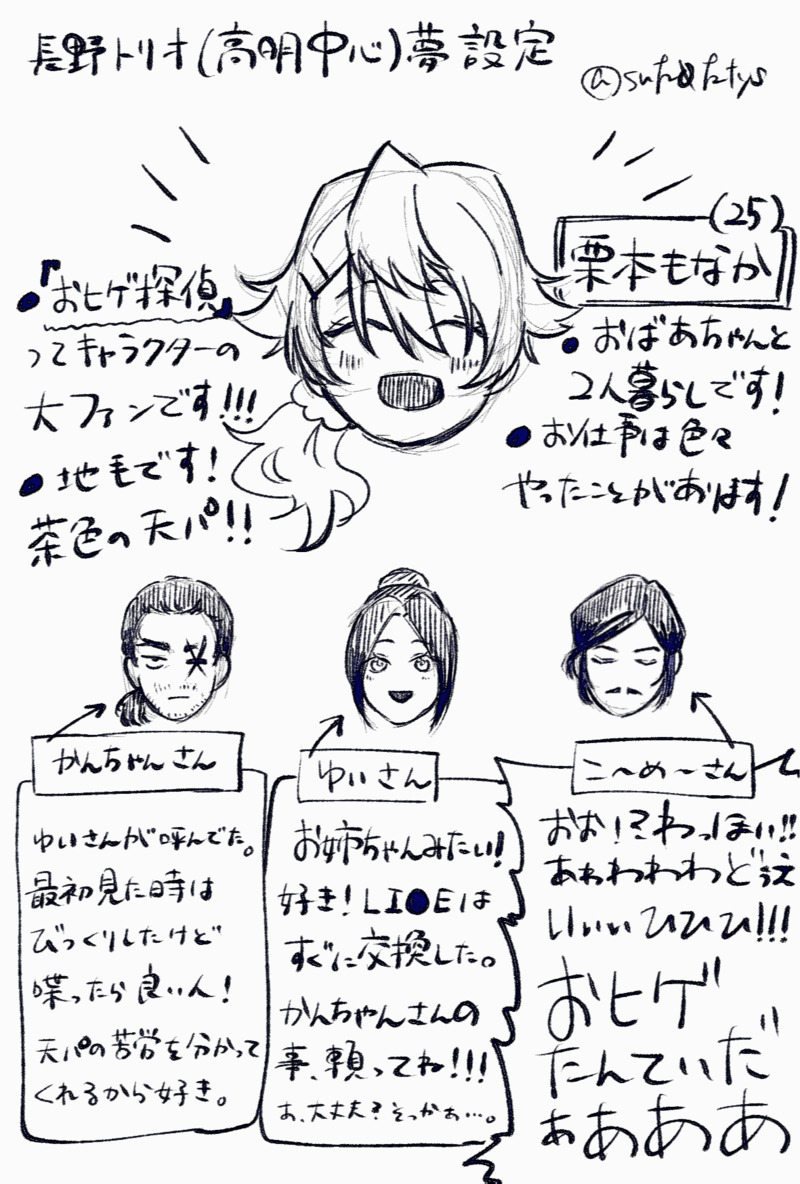 長野トリオ(高明中心)夢設定
(25)
栗本もなか
●『おヒゲ探偵』
ってキャラクターの
大ファンです!!!
●地毛です!
茶色の天パ!!
●おばあちゃんと
2人暮らしです!
●お仕事は色々
やったことがあります!
かんちゃんさん
ゆいさんが呼んでた。
最初見た時は
びっくりしたけど
喋ったら良い人!
天パの苦労を分かって
くれるから好き。
ゆいさん
お姉ちゃんみたい!
好き!LI●Eは
すぐに交換した。
かんちゃんさんの
事、頼ってね!!!
あ、大丈夫?そっかぁ…。
こ〜め〜さん
おお!?わっほい!!
あぁわわわどぅえ
いいぃヒヒヒ!!!
おヒゲ
たんていだ
ぁあああ